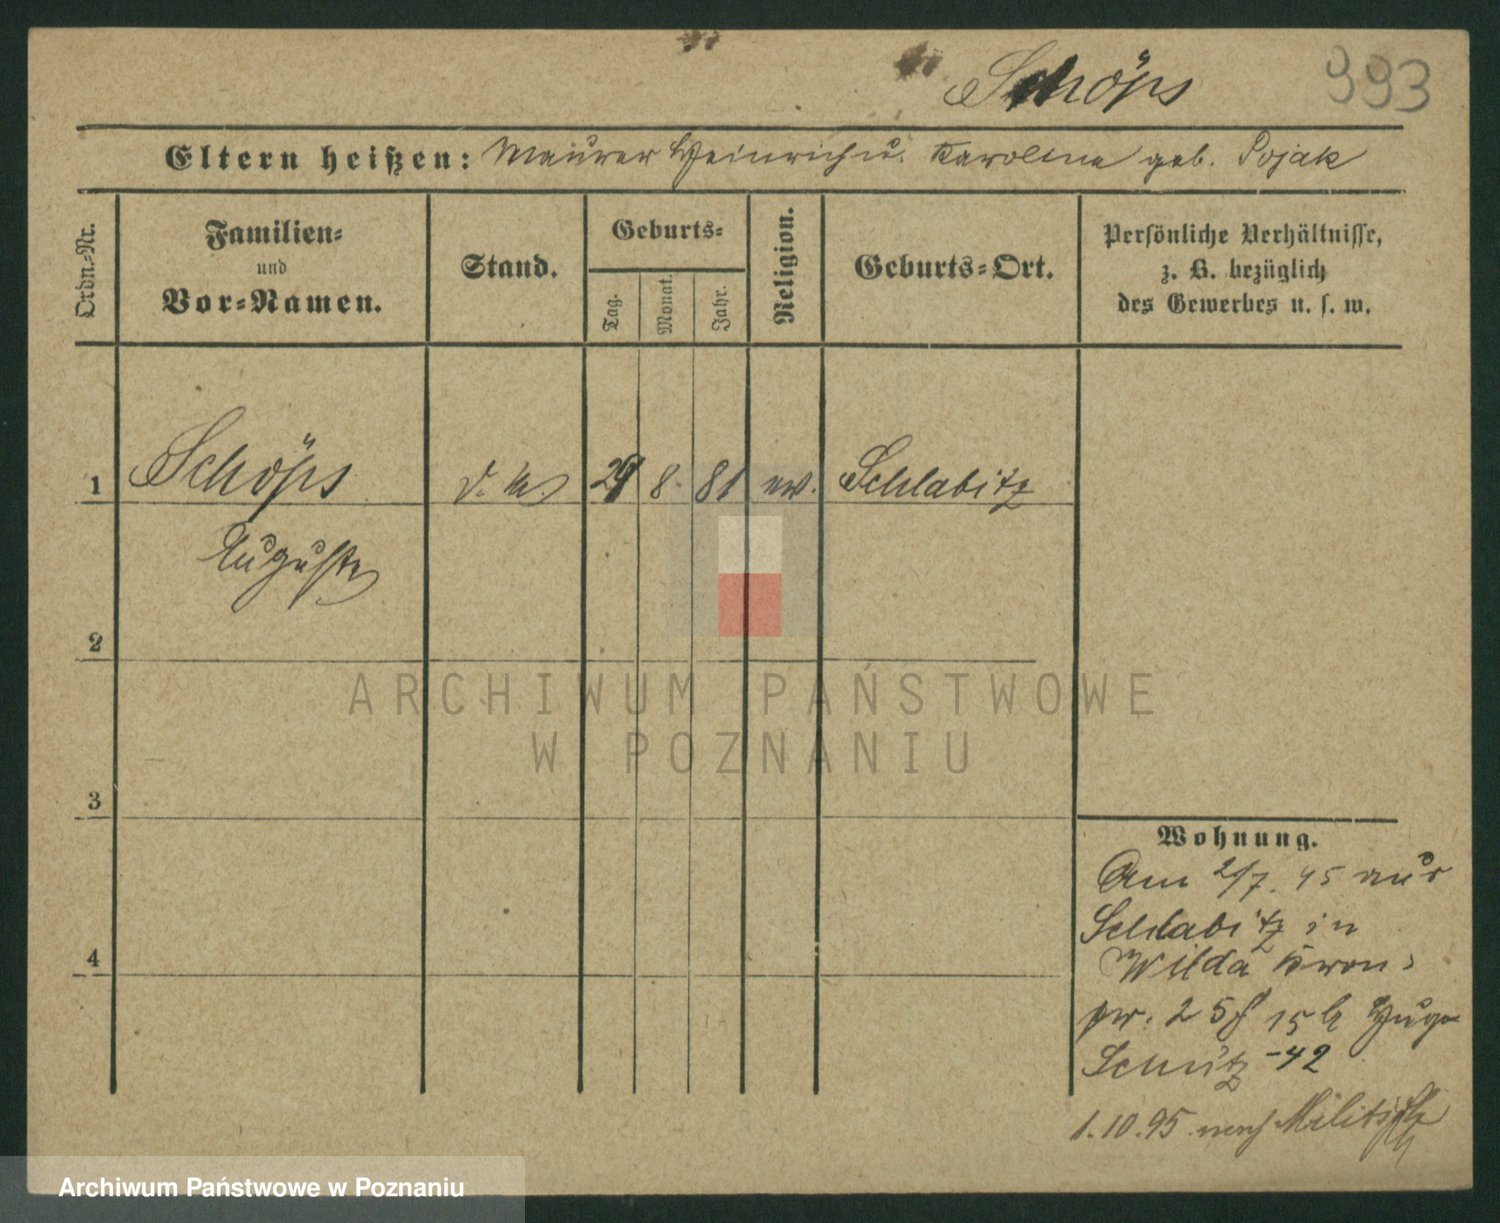 Schöps 993
Eltern heißen: Maurer Heinrich u. Karoline geb. Pojak
Ordn.-Nr.
Familien-
und
Vor-Namen.
Stand.
Geburts-
Tag.
Monat.
Jahr.
Religion.
Geburts-Ort.
Persönliche Verhältnisse,
z. B. bezüglich
des Gewerbes u. s. w.
1 Schöps d. M. 29 8. 81 ev. Schlabitz
Auguste
2
3
4
ARCHIWUM PAŃSTWOWE
W POZNANIU
Wohnung.
Am 2/7. 95 aus
Schlabitz in
Wilda Kron-
pr. 25 15 Hugo
Schütz -42
1.10.95 nach Militsch
Archiwum Państwowe w Poznaniu